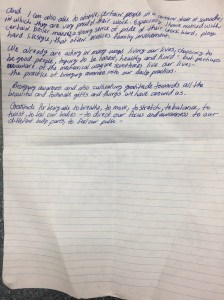 And I am also able to observe certain people in a certain state of
in which they are very proud their work. Especially, I have noticed with
certain bosses makes a strong sense of pride of their work hard, play
hard lifestyle, that often involves family involvement.
We already are acting in many ways living our lives, choosing to
be good people, trying to be honest, healthy and kind - but perhaps
of the mechanical ways we sometimes live our lives -
the practice of bringing awareness into our daily practices.
Bringing awareness and also cultivating gratitude towards all the
beautiful and fortunate gifts and things we have around us.
Gratitude for being able to breathe, to move, to stretch, to balance, to
twist, to feel our bodies - to direct our focus and awareness to our
different body parts, to feel our pulse -